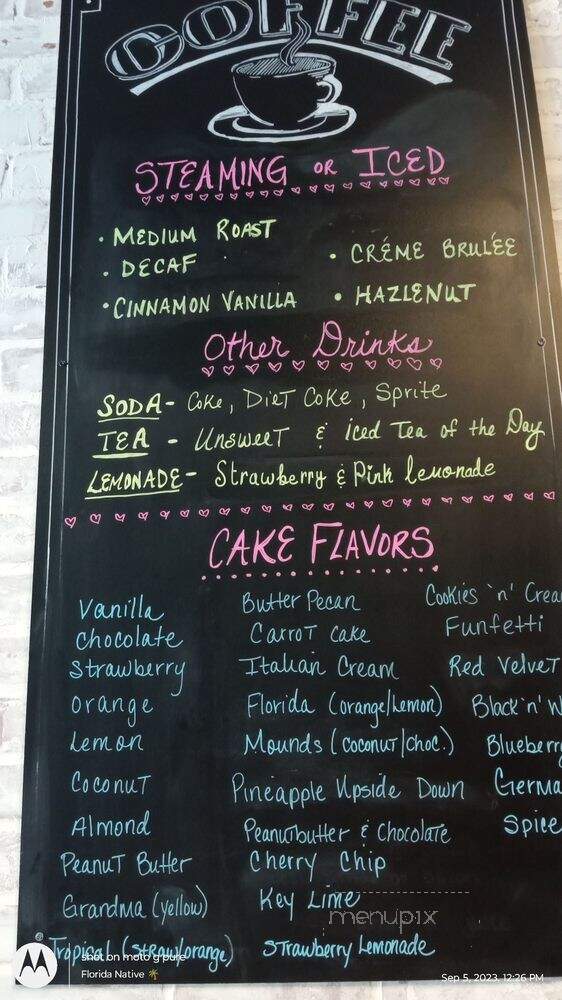 COFFEE
STEAMING OR ICED
• MEDIUM ROAST
• DECAF
• CINNAMON VANILLA
• CRÉME BRULÉE
• HAZLENUT
Other Drinks
SODA - Coke, Diet Coke, Sprite
TEA - Unsweet & iced Tea of the Day
LEMONADE - Strawberry & Pink lemonade
CAKE FLAVORS
Vanilla
Chocolate
Strawberry
Orange
Lemon
Coconut
Almond
Peanut Butter
Grandma (yellow)
Tropical (straw/orange)
Butter Pecan
Carrot Cake
Italian Cream
Florida (orange/lemon)
Mounds (coconut/choc.)
Pineapple Upside Down
Peanutbutter & Chocolate
Cherry Chip
Key Lime
Strawberry Lemonade
Cookies 'n' Crea
Funfetti
Red Velvet
Black 'n' W
Blueberry
Germa
Spice
menupix
shot on moto g pure
Florida Native 🌴
Sep 5, 2023, 12:26 PM